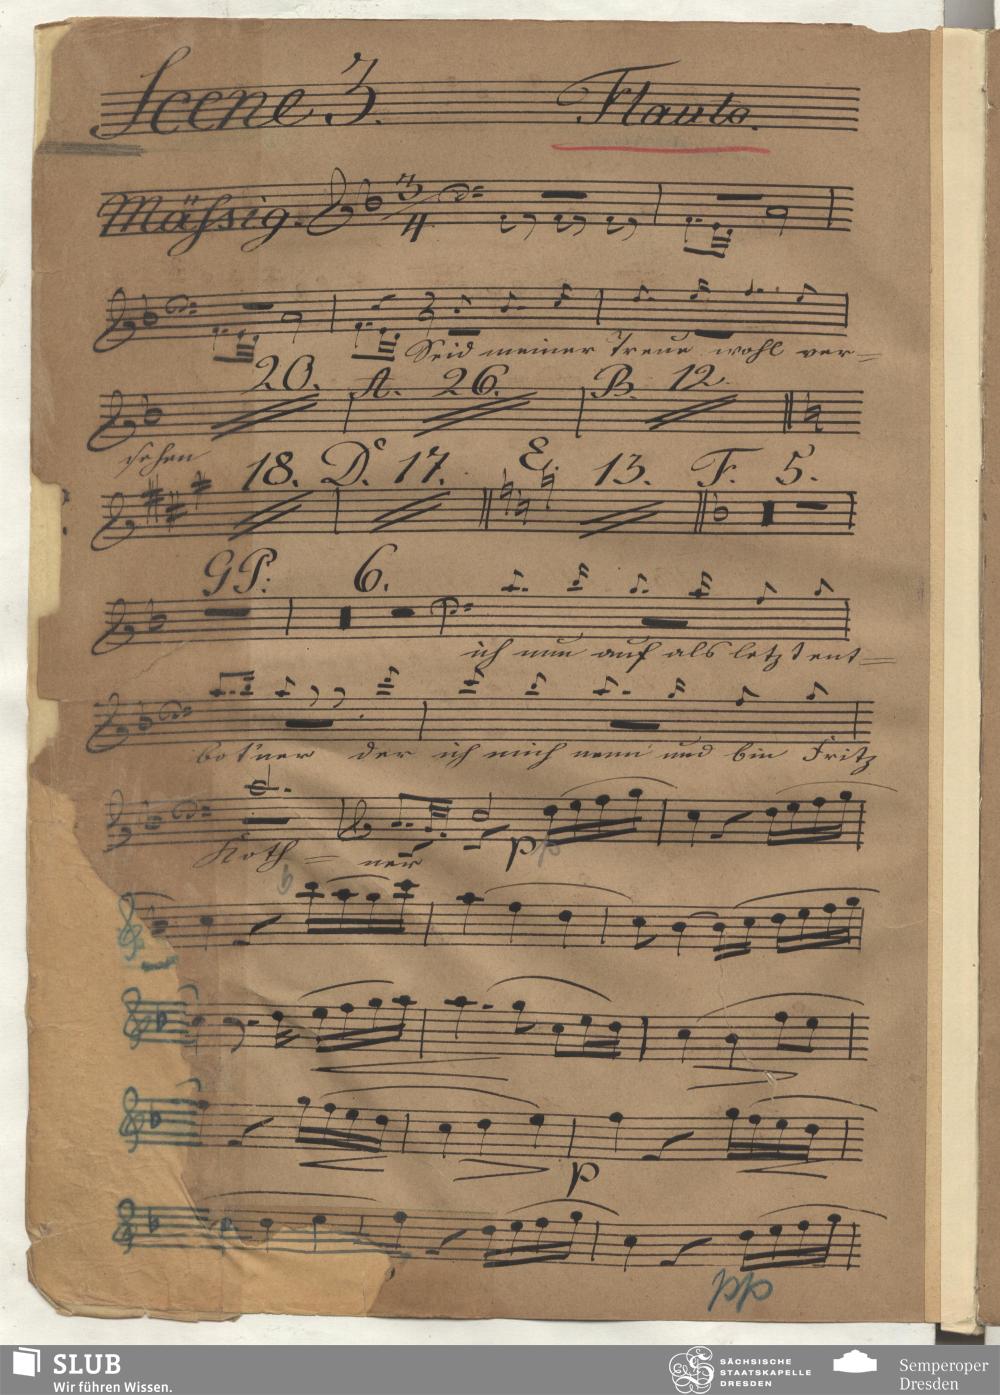 Scene 3. Flauto.
Mässig. 3/4
Seid meiner Treue wohl ver=
20. A. 26. B. 12.
sehen
18. D. 17. E. 13. F. 5.
GP. 6.
ich nun auf als letzt ent=
bot'ner der ich mich nenn' und bin Fritz
Koth = ner
p
p
pp
SLUB
Wir führen Wissen.
SÄCHSISCHE
STAATSKAPELLE
DRESDEN
Semperoper
Dresden